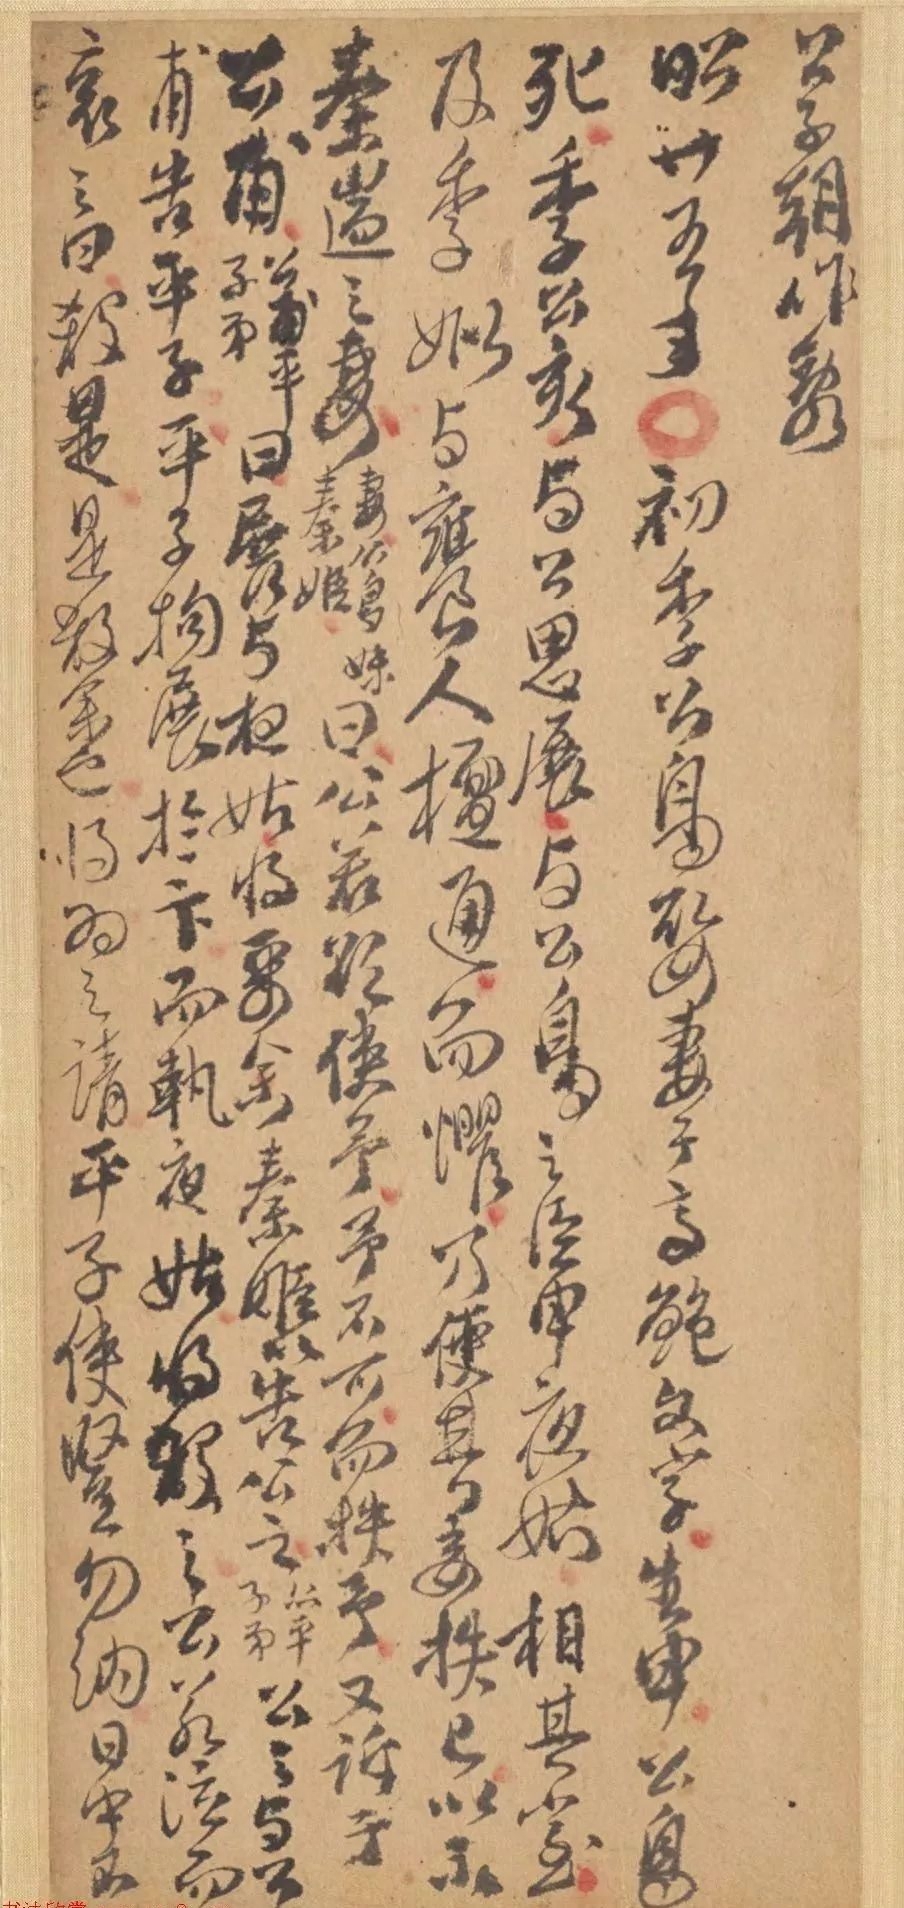 公子朝作乱
昭廿五年 初季公鳥娶妻于齐鲍文子生甲公鳥
死季公亥与公思展与公鳥之臣申夜姑相其室
及季姒与饔人檀通而懼乃使其妾抶己以示
秦遄之妻 妻公鳥妹秦姬 曰公若欲使余予不可而抶予又訴于
公甫 公甫平子弟 曰展与夜姑将要余秦姬以告公之 公之平子弟 公之与公
甫告平子平子拘展於卞而執夜姑将殺之公若泣而
哀之曰殺是是殺余也将为之請平子使竖勿纳日中不